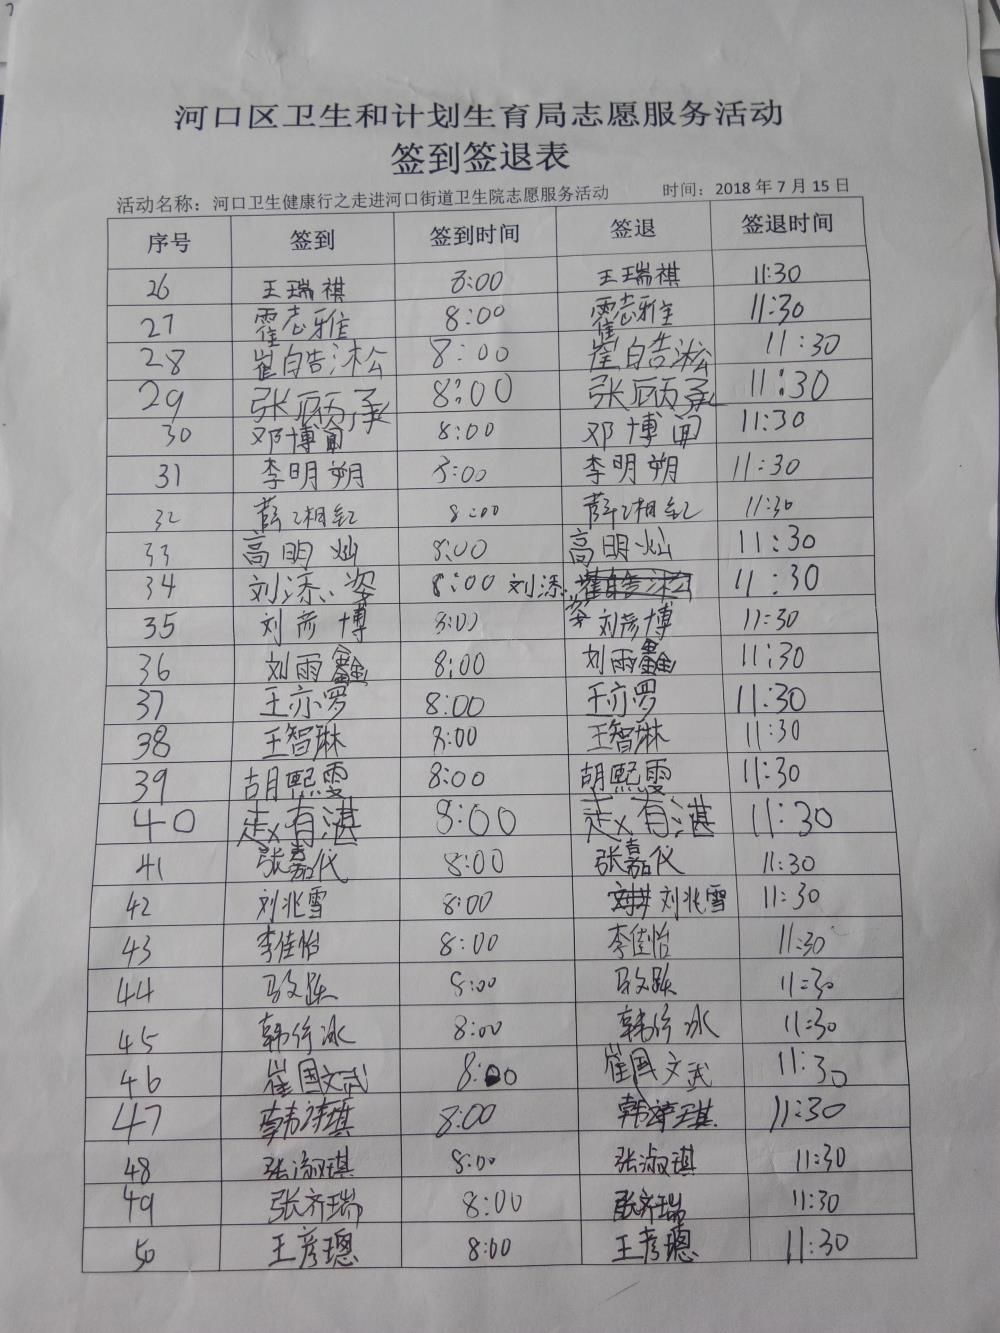 河口区卫生和计划生育局志愿服务活动
签到签退表
活动名称：河口卫生健康行之走进河口街道卫生院志愿服务活动 时间：2018年7月15日
序号 签到 签到时间 签退 签退时间
26 王瑞祺 8:00 王瑞祺 11:30
27 霍志雅 8:00 霍志雅 11:30
28 崔皓淞 8:00 崔皓淞 11:30
29 张炳承 8:00 张炳承 11:30
30 邓博闻 8:00 邓博闻 11:30
31 李明朔 8:00 李明朔 11:30
32 薛湘 8:00 薛湘 11:30
33 高明灿 8:00 高明灿 11:30
34 刘添姿 8:00 刘添姿 11:30
35 刘彦博 8:00 刘彦博 11:30
36 刘雨鑫 8:00 刘雨鑫 11:30
37 王亦罗 8:00 王亦罗 11:30
38 王智琳 8:00 王智琳 11:30
39 胡熙雯 8:00 胡熙雯 11:30
40 赵有湛 8:00 赵有湛 11:30
41 张嘉仪 8:00 张嘉仪 11:30
42 刘兆雪 8:00 刘兆雪 11:30
43 李佳怡 8:00 李佳怡 11:30
44 8:00 11:30
45 韩冰 8:00 韩冰 11:30
46 崔国文武 8:00 崔国文武 11:30
47 韩琪 8:00 韩琪 11:30
48 张淑琪 8:00 张淑琪 11:30
49 张齐瑞 8:00 张齐瑞 11:30
50 王彦璁 8:00 王彦璁 11:30